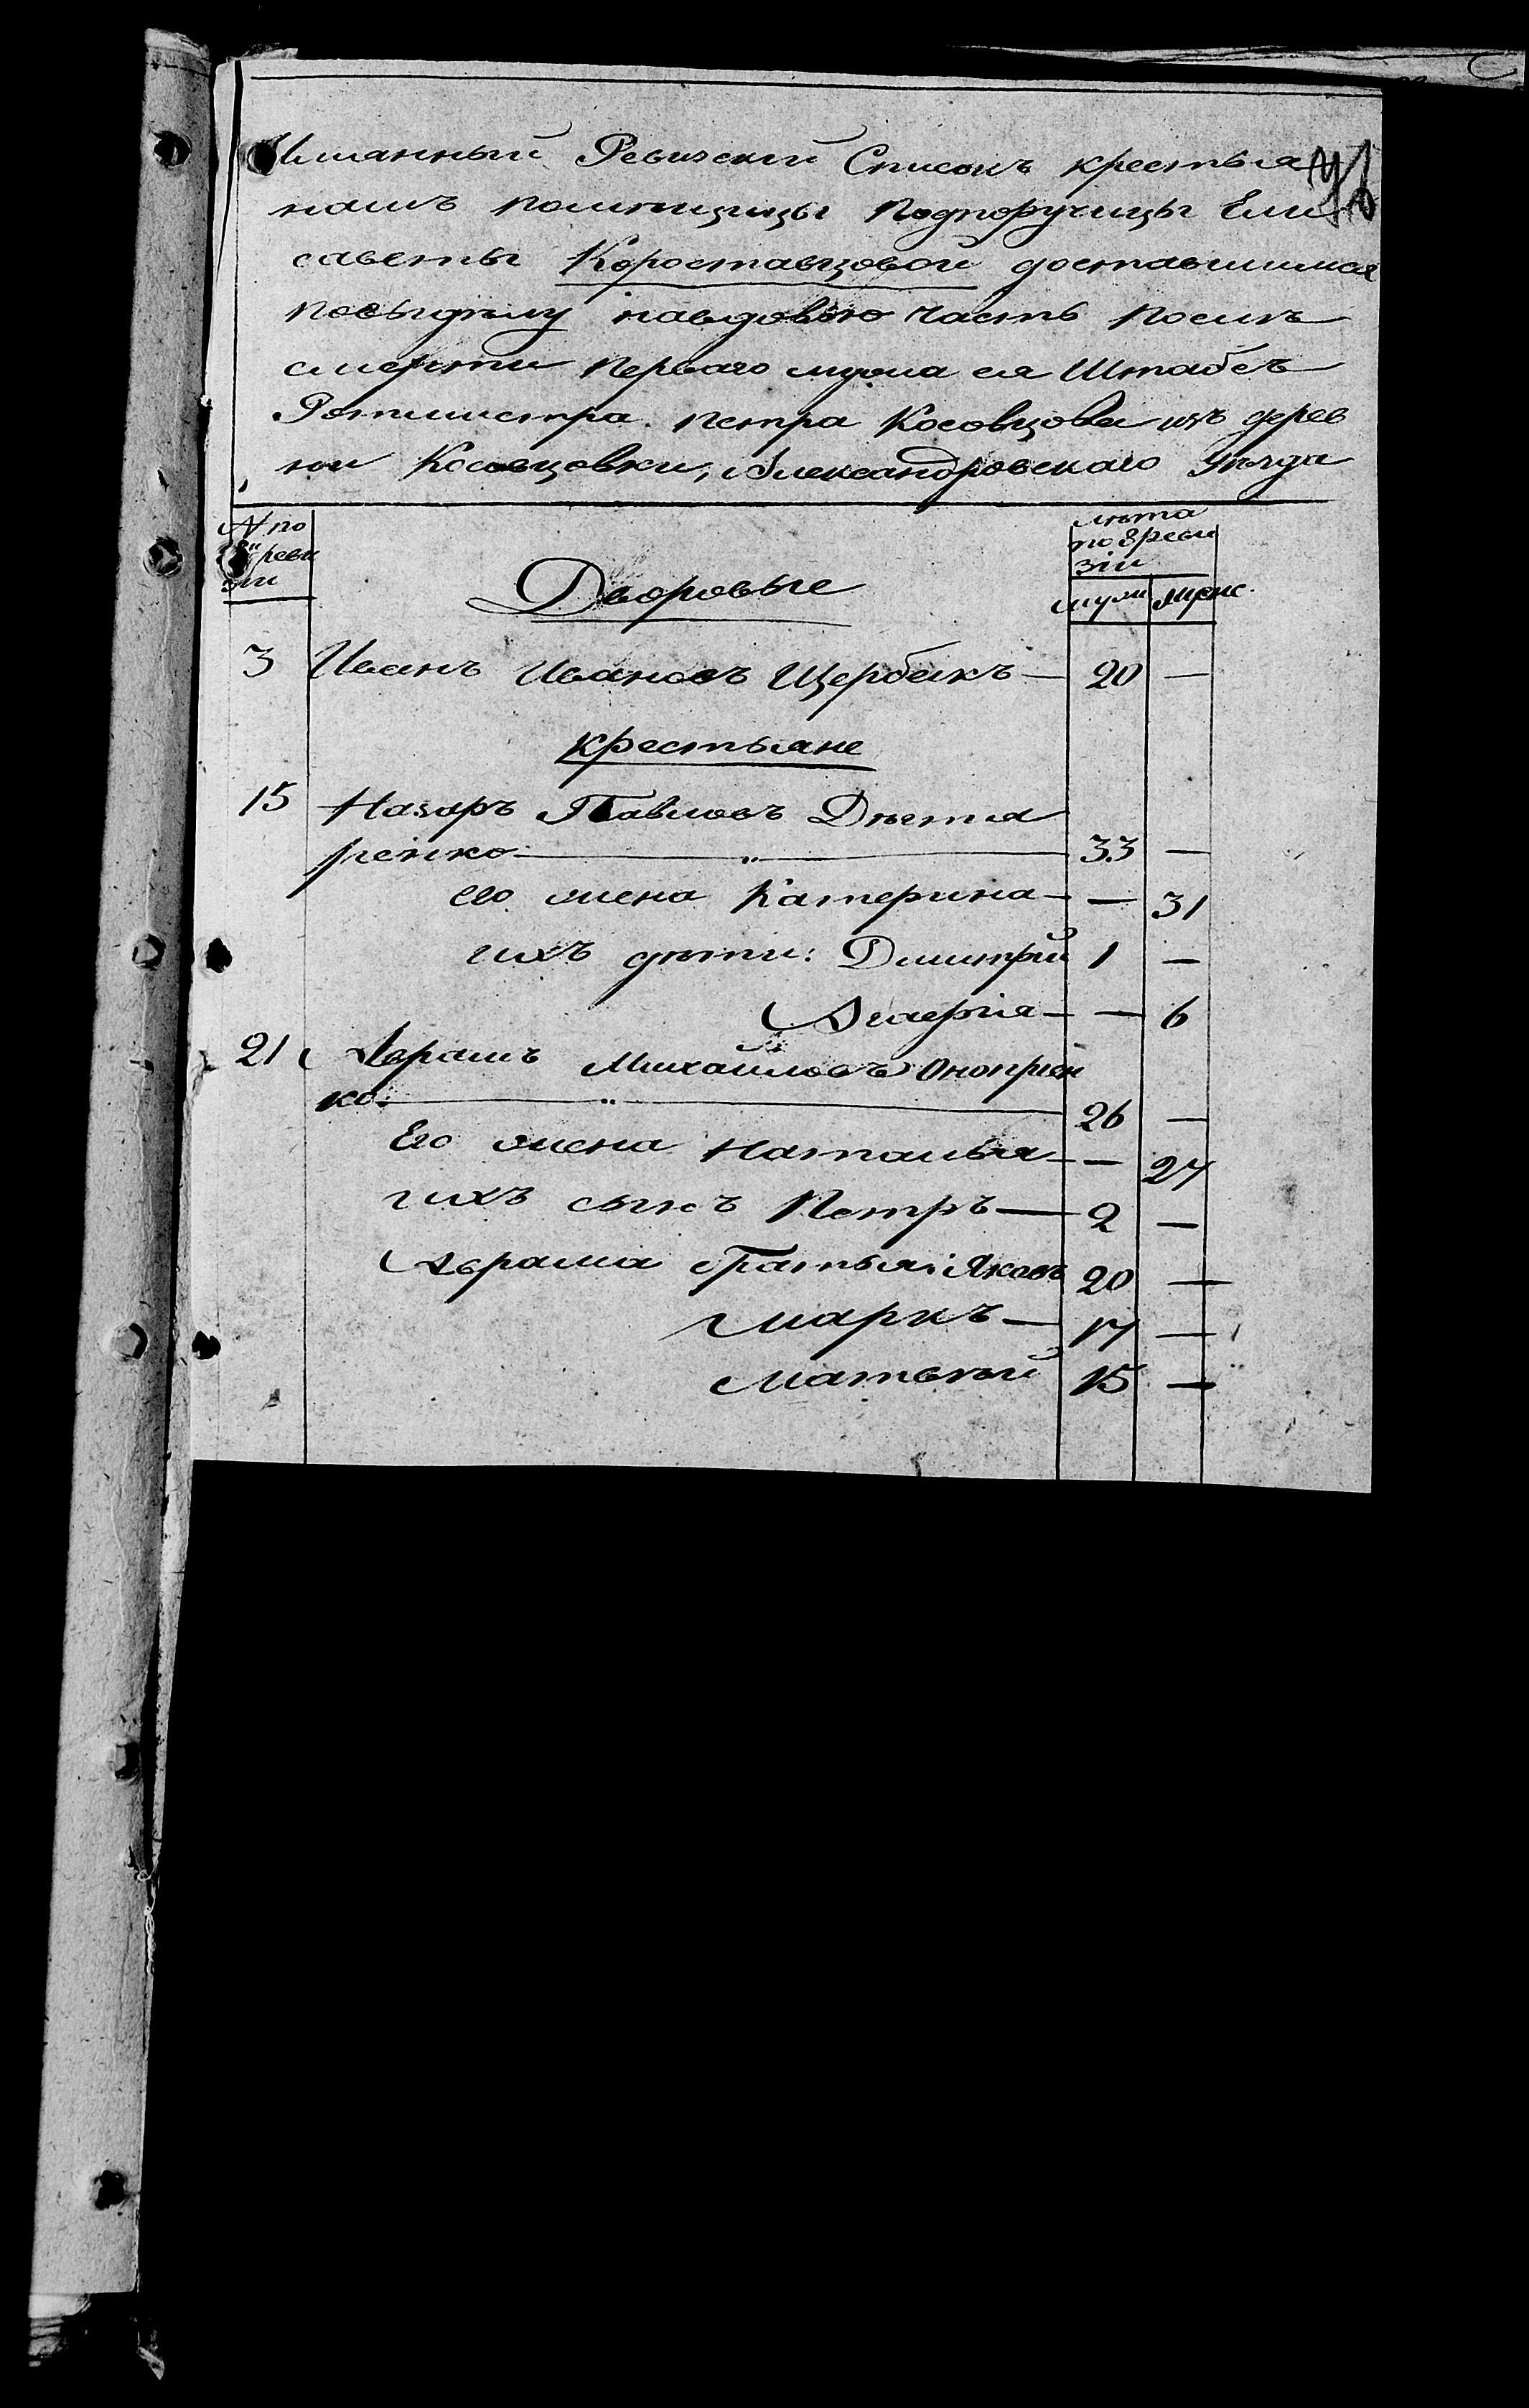 Именный Ревизский Списокъ крестья
намъ помѣщицы Подпоручицы Ели
саветы Короставцовой доставшимся
повыдѣлу навдовью часть послѣ
смерти перваго мужа ея Штабсъ
Ротмистра Петра Косовцова изъ дерев
ни Косовцовки, Александровскаго уѣзда
№ по 8й реви зіи
лѣта по 8 реви зіи
муж женс.
Дворовые
3 Иванъ Ивановъ Щербакъ — 20 —
крестьяне
15 Назаръ Павловъ Дѣхтя
ренко — " — 33 —
его жена Катерина — — 31
ихъ дѣти: Димитрій 1 —
— — 6
21 Аврамъ Михайловъ Оноприен
ко — " — 26 —
Его жена Наталья — — 27
ихъ сынъ Петръ — 2 —
Аврама братья: Яковъ 20 —
Маркъ — 17 —
Матвѣй 15 —